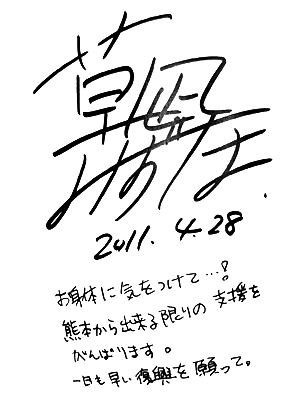 2011. 4. 28
お身体に気をつけて…!
熊本から出来る限りの支援を
がんばります。
一日も早い復興を願って。